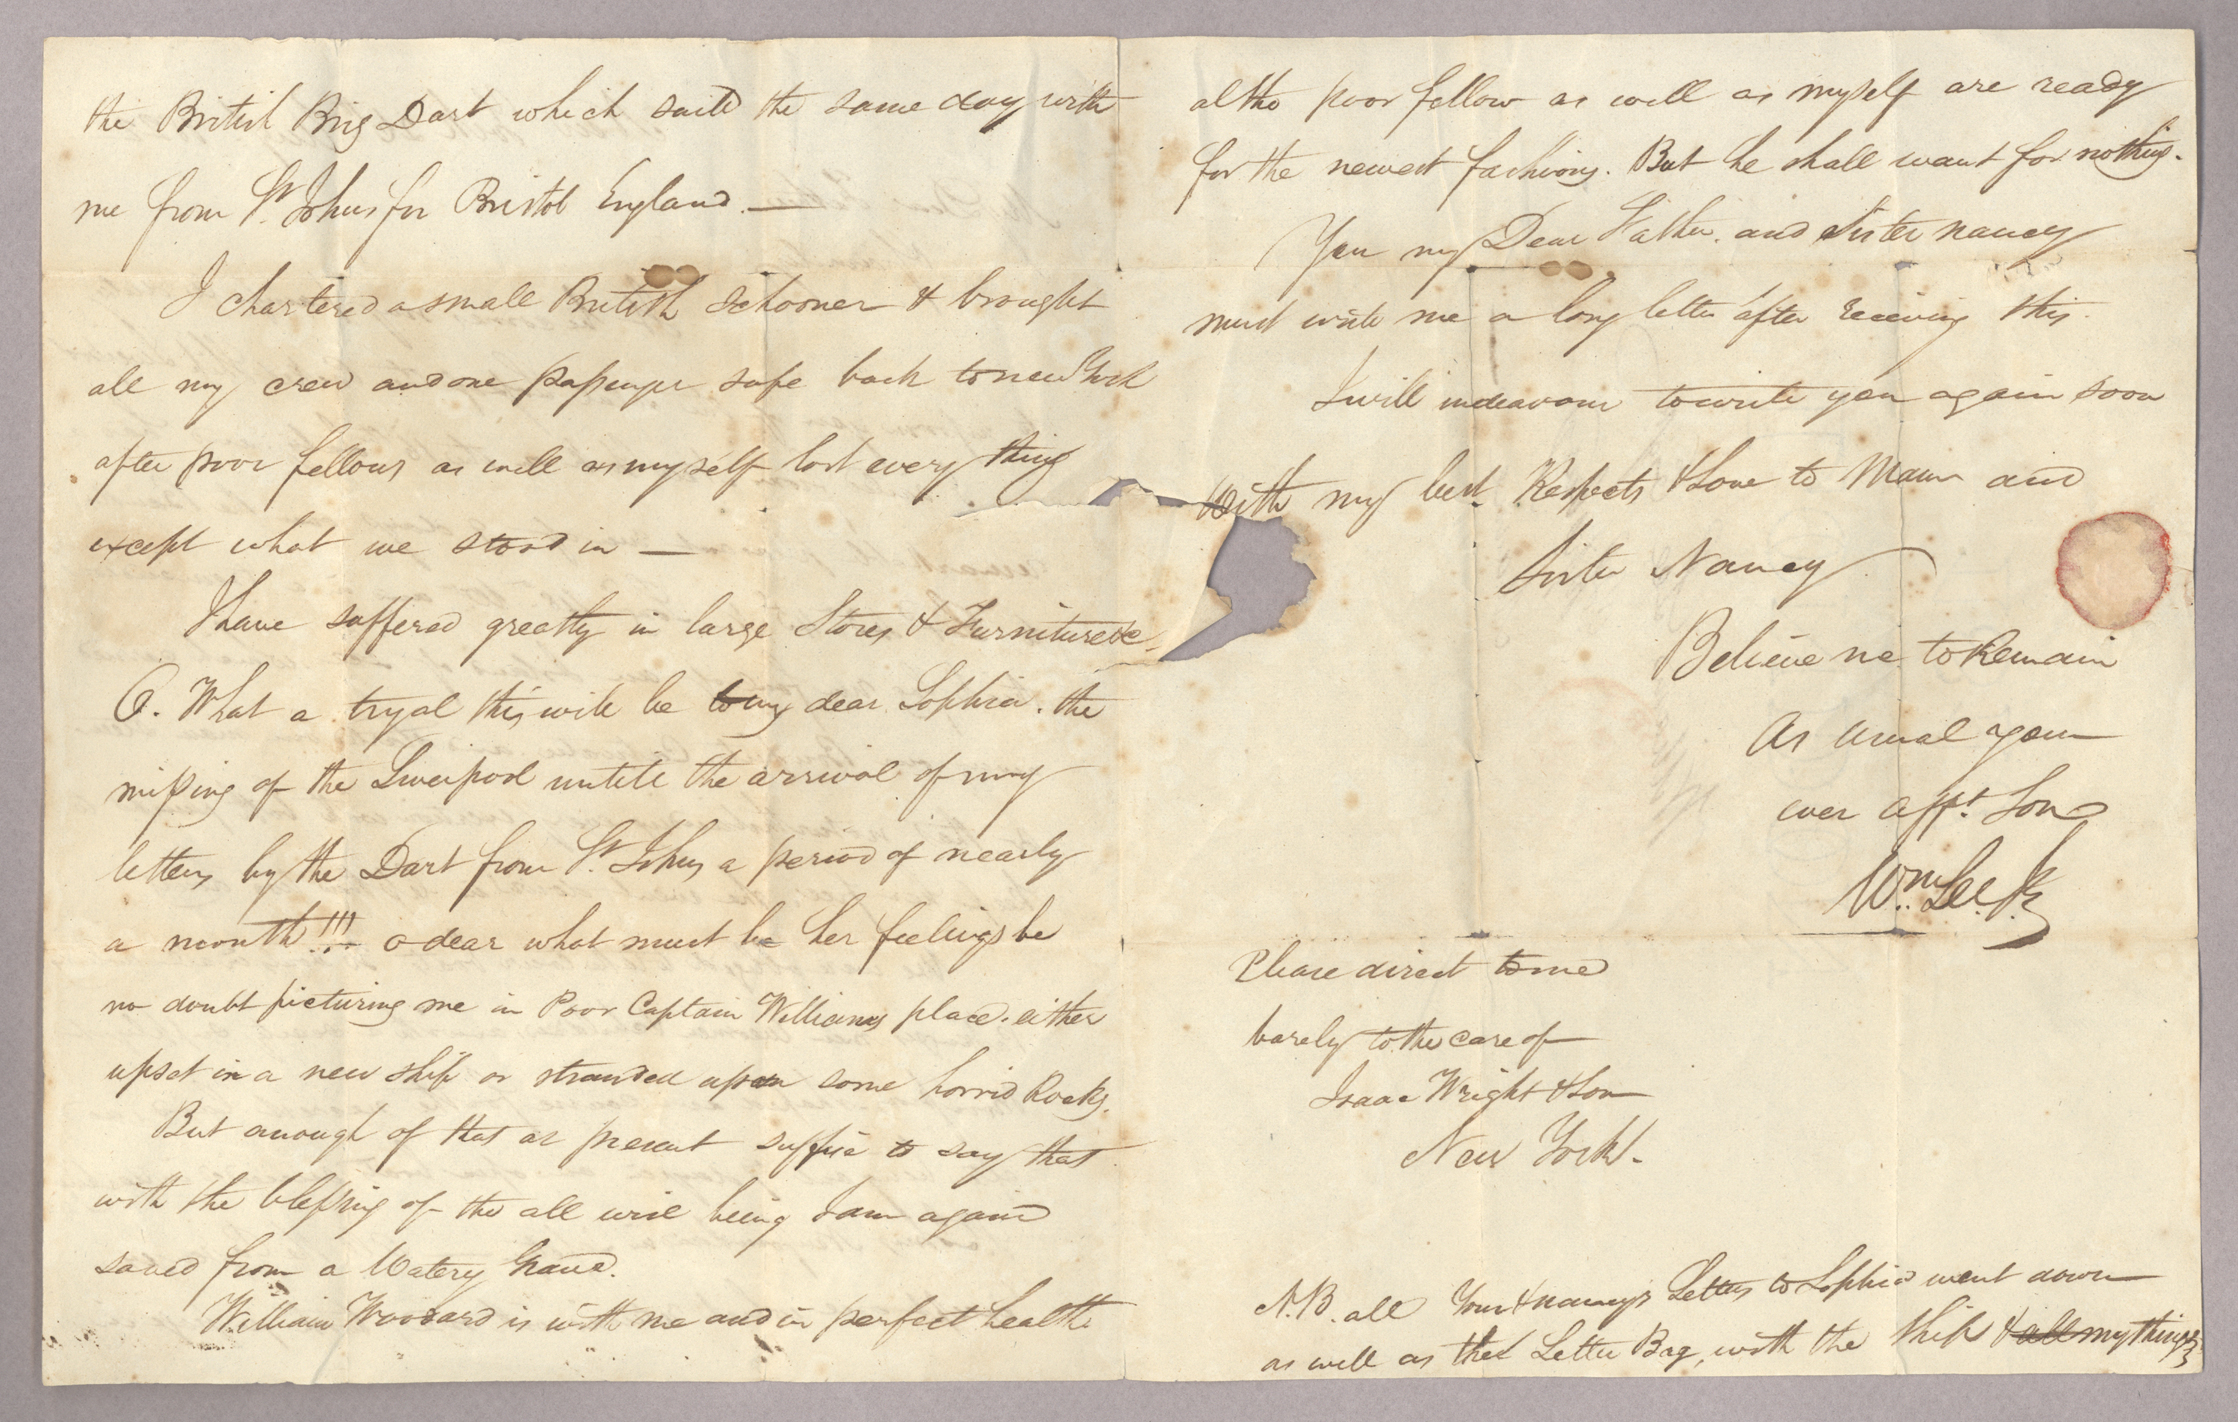 the British Brig Dart which saild the same day with
me from St. Johns for Bristol England. —
I chartered a small British Schooner & brought
all my crew and one passenger safe back to new York
after poor fellows as well as myself lost every thing
except what we stood in —
I have suffered greatly in large Stores & Furniture &c
O. What a tryal this will be to my dear Sophia. the
missing of the Liverpool untill the arrival of my
letters by the Dart from St. Johns a period of nearly
a month!!! o dear what must be her feelings be
no doubt picturing me in Poor Captain Williams place. either
upset in a new ship or stranded upon some horrid Rocks.
But enough of that at present suffice to say that
with the blessing of the all wise being I am again
saved from a Watery Grave.
William Woodard is with me and in perfect health
altho poor fellow as well as myself are ready
for the newest fashions. But he shall want for nothing.
You my Dear Father. and Sister nancy
must write me a long letter after receiving this.
I will indeavour to write you again soon
With my best Respects & Love to Mam and
Sister Nancy
Believe me to Remain
As usual your
ever afft. Son
Wm. Lee Jr
Please direct to me
barely to the care of
Isaac Wright & Son
New York.
N.B. all Your & nancy's Letters to Sophia went down
as well as the Letter Bag, with the Ship & all my things